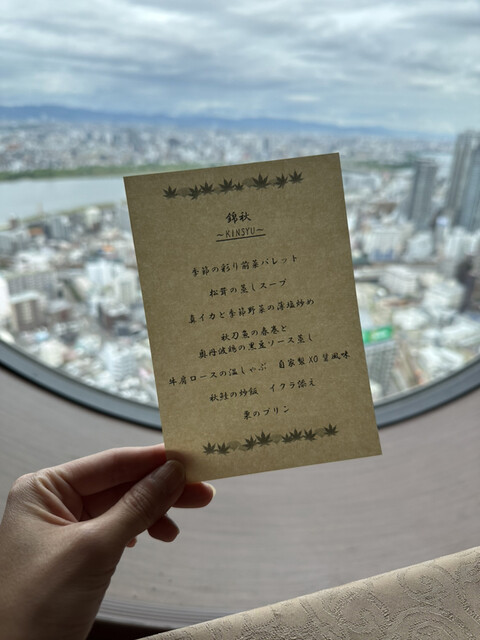 錦秋
～KINSYU～
季節の彩り前菜パレット
松茸の蒸しスープ
真イカと季節野菜の薄塩炒め
秋刀魚の春巻と
奥丹波鶏の黒豆ソース蒸し
牛肩ロースの温しゃぶ 自家製XO醤風味
秋鮭の炒飯 イクラ添え
栗のプリン